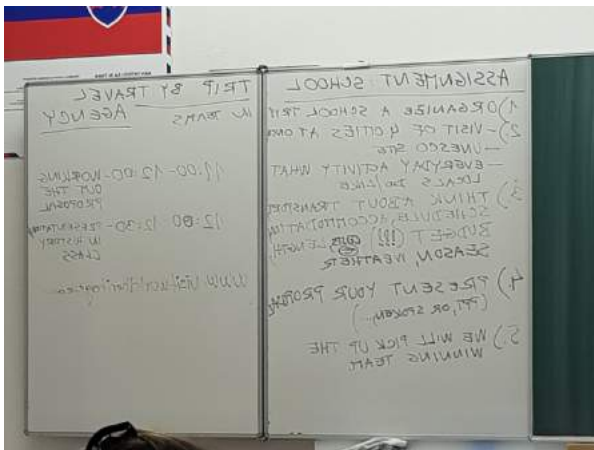 ASSIGNMENT: SCHOOL
1) ORGANIZE A SCHOOL TRIP
2) – VISIT OF 4 CITIES AT
– UNESCO SITE
– EVERYDAY ACTIVITY WHAT
LOCALS DO/LIKE
3) THINK ABOUT TRANSPORT
SCHEDULE, ACCOMMODATION,
BUDGET (!!!) LENGTH,
SEASON, WEATHER
4) PRESENT YOUR PROPOSAL
(PPT, OR SPOKEN,...)
5.) WE WILL PICK UP THE
WINNING TEAM
TRIP BY TRAVEL
IN TEAMS AGENCY
11.00 - 12:00 - WORKING
OUT THE
PROPOSAL
12:00 - 12:30 - PRESENTATION
IN HISTORY
CLASS